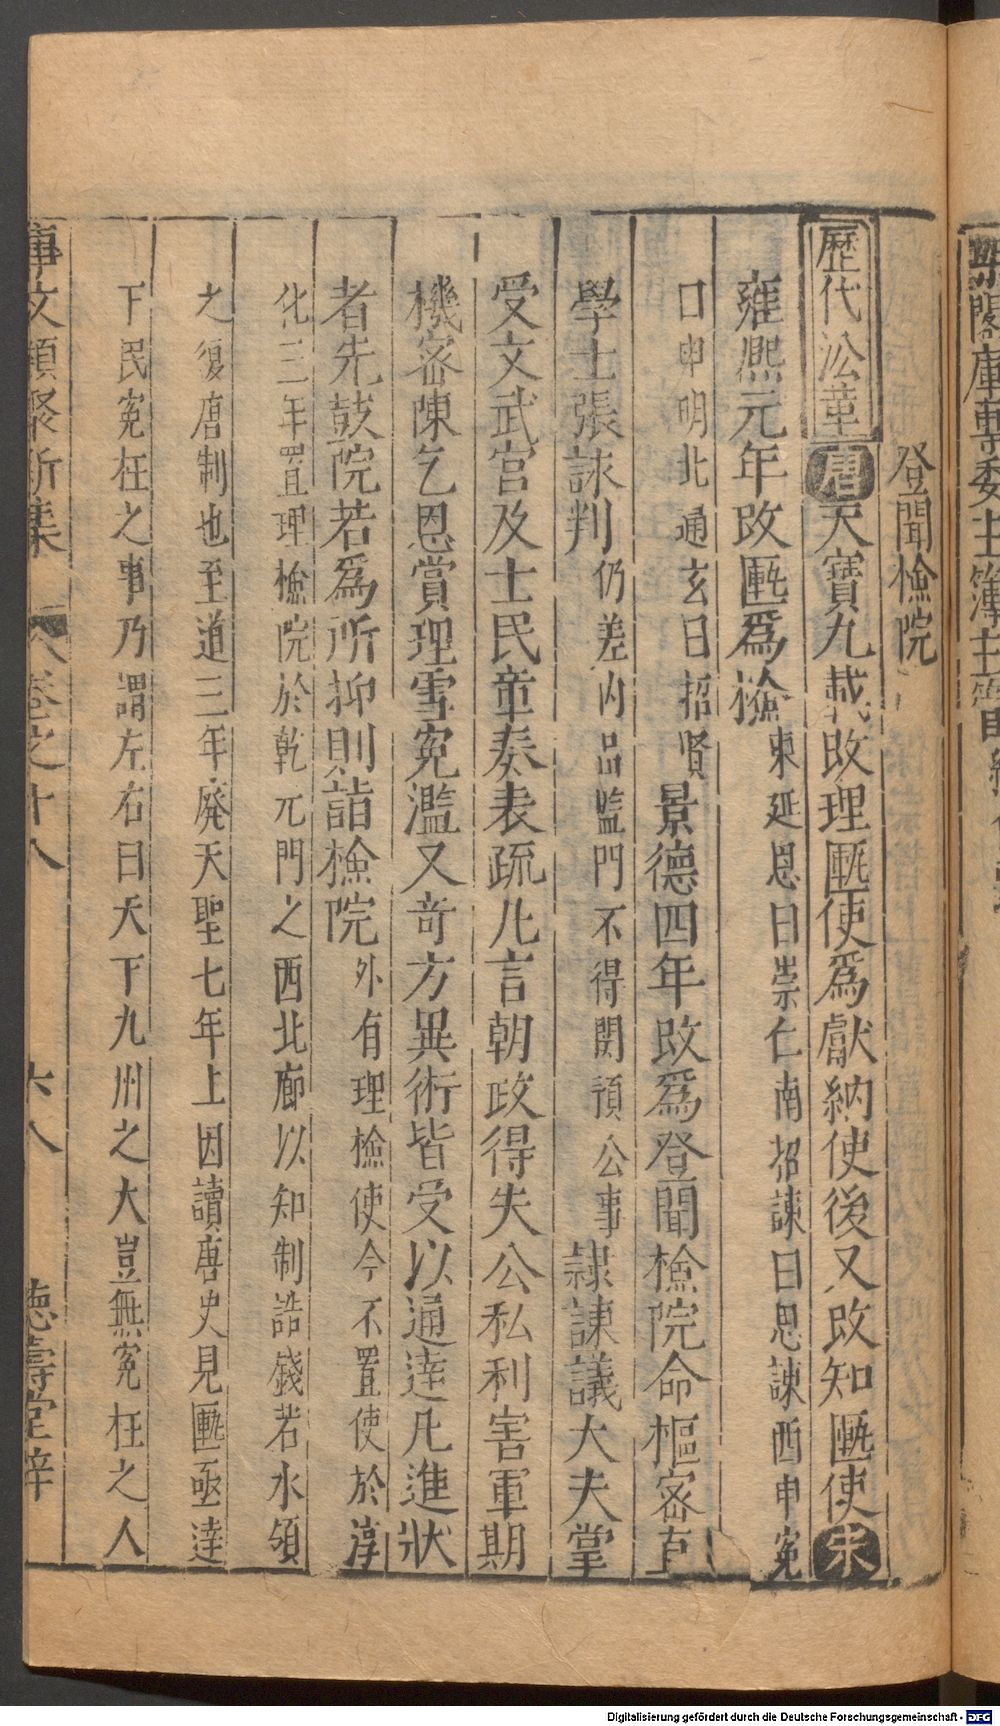 登聞檢院
歷代沿革唐天寶九載改理匭使爲獻納使後又改知匭使宋
雍熈元年改匭爲檢東延恩曰崇仁南招諫曰思諫西申寃
曰申明北通玄曰招賢景德四年改爲登聞檢院命樞密直
學士張詠判仍差内品監門不得関預公事隷諫議大夫掌
受文武官及士民章奏表疏凡言朝政得失公私利害軍期
機密陳乞恩賞理雪寃濫又奇方異術皆受以通逹凡進狀
者先鼓院若爲所抑則詣檢院外有理檢使今不置使於淳
化三年置理檢院於乾元門之西北廊以知制誥錢若水領
之復唐制也至道三年廢天聖七年上因讀唐史見匭亟逹
下民寃枉之事乃謂左右曰天下九州之大豈無寃枉之人
事文類聚新集 卷之十八 六八 德壽堂梓
閣庫専委主簿主管
Digitalisierung gefördert durch die Deutsche Forschungsgemeinschaft - DFG